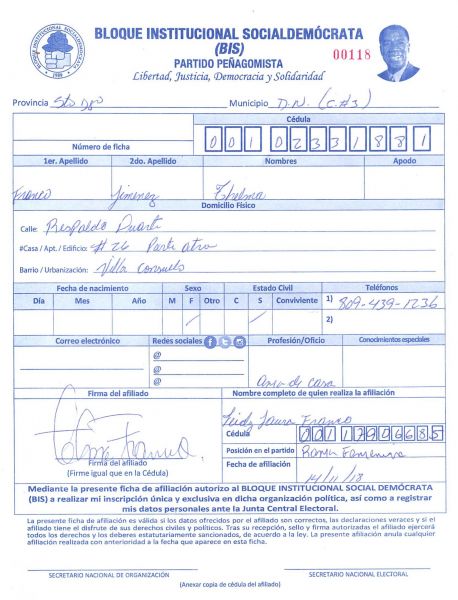 BLOQUE INSTITUCIONAL SOCIALDEMÓCRATA
(BIS)
PARTIDO PEÑAGOMISTA
Libertad, Justicia, Democracia y Solidaridad
00118
BLOQUE INSTITUCIONAL SOCIALDEMOCRATA
BIS
1989
Provincia Sto Dgo Municipio D.N. (C.#3)
Cédula
Número de ficha 0010233188 1
1er. Apellido 2do. Apellido Nombres Apodo
Franco Jimenez Thelma
Domicilio Físico
Calle: Respaldo Duarte
#Casa / Apt. / Edificio: #26 Parte atras
Barrio / Urbanización: Villa Consuelo
Fecha de nacimiento Sexo Estado Civil Teléfonos
Día Mes Año M F Otro C S Conviviente 1) 809-439-1236
2)
Correo electrónico Redes sociales Profesión/Oficio Conocimientos especiales
@
@
@ Ama de casa
Firma del afiliado Nombre completo de quien realiza la afiliación
Laura Franco
Cédula 00117906685
Posición en el partido Rama Femenina
Firma del afiliado
(Firme igual que en la Cédula)
Fecha de afiliación 14/11/18
Mediante la presente ficha de afiliación autorizo al BLOQUE INSTITUCIONAL SOCIAL DEMÓCRATA
(BIS) a realizar mi inscripción única y exclusiva en dicha organización política, así como a registrar
mis datos personales ante la Junta Central Electoral.
La presente ficha de afiliación es válida si los datos ofrecidos por el afiliado son correctos, las declaraciones veraces y si el
afiliado tiene el disfrute de sus derechos civiles y políticos. Tras su recepción, sello y firma autorizados el afiliado ejercerá
todos los derechos y los deberes estatutariamente sancionados, de acuerdo a la ley. La presente afiliación anula cualquier
afiliación realizada con anterioridad a la fecha que aparece en esta ficha.
SECRETARIO NACIONAL DE ORGANIZACIÓN SECRETARIO NACIONAL ELECTORAL
(Anexar copia de cédula del afiliado)